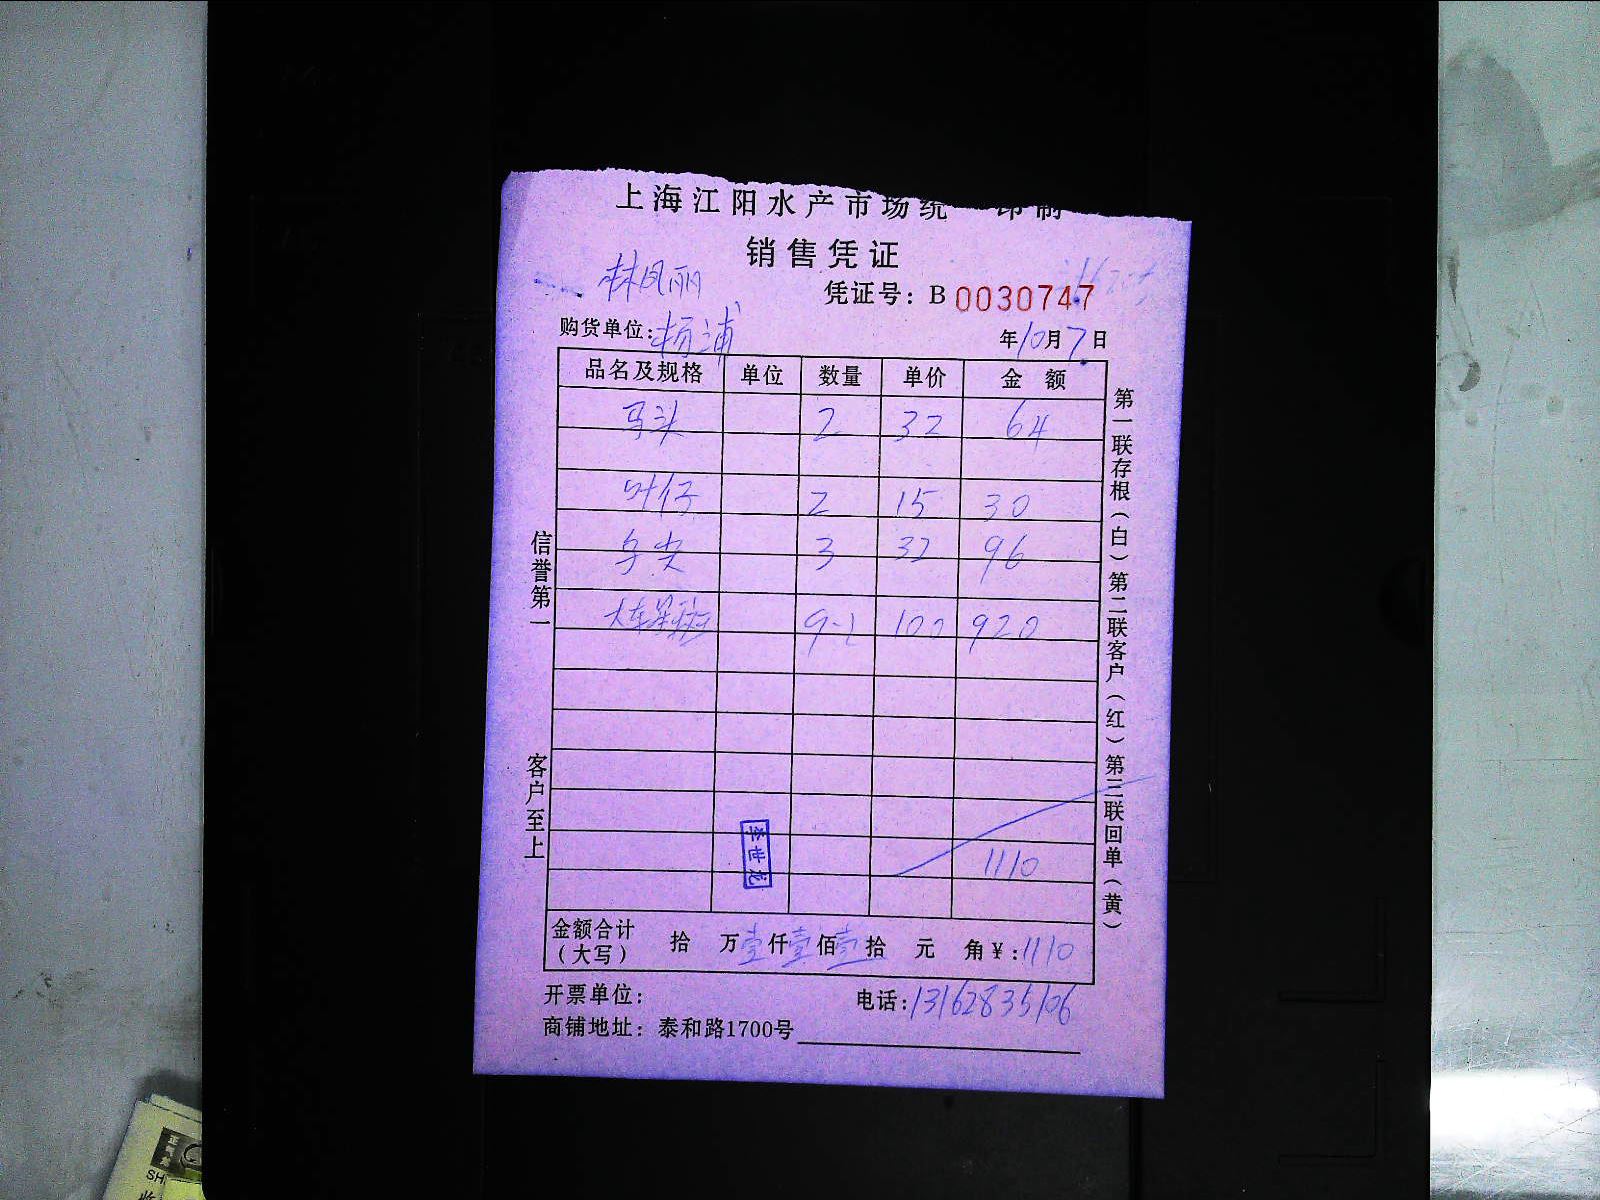 上海江阳水产市场统一印制
销售凭证
林凤丽
凭证号：B 0030747
购货单位：杨浦
年10月7日
品名及规格 单位 数量 单价 金额
马头 2 32 64
叶仔 2 15 30
乌尖 3 32 96
大车星斑 9-2 100 920
1110
金额合计（大写） 拾 万壹仟壹佰壹拾 元 角￥：1110
开票单位：
电话：13162835106
商铺地址：泰和路1700号
信誉第一
客户至上
第一联存根（白）第二联客户（红）第三联回单（黄）
李世龙
SH